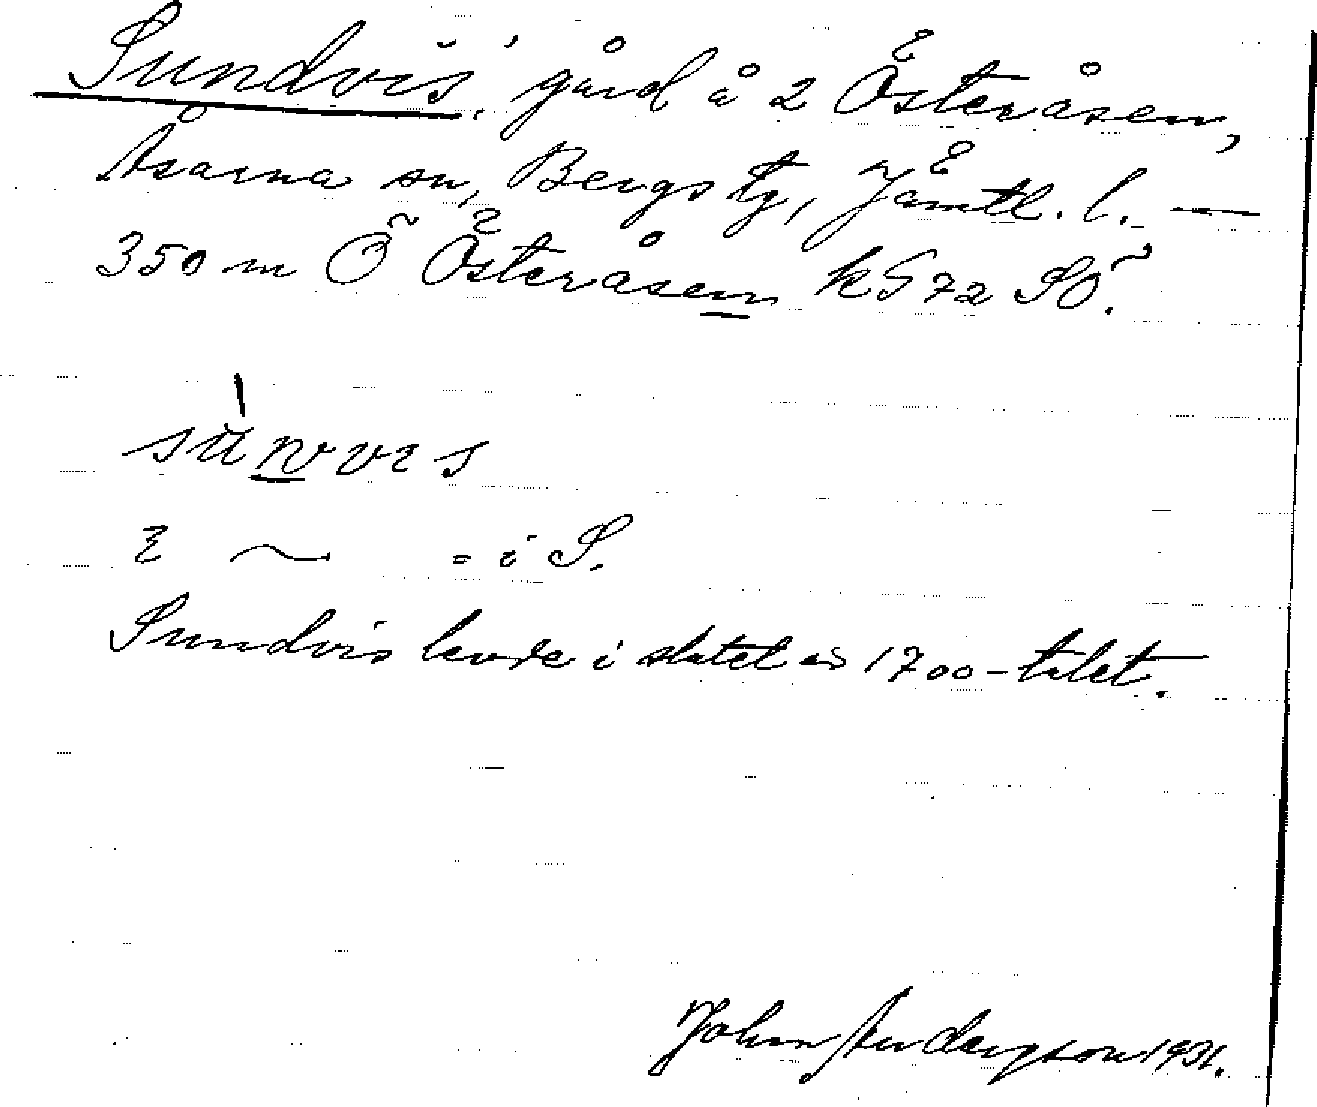 Sundvis, gård å 2 Österåsen,
Åsarna sn, Bergs tg, Jämtl. l. —
350 m Ö Österåsen k G 72 SÖ.
sunvis
i ~ = i S.
Sundvis levde i slutet av 1700-talet.
John Anderzson 1931.